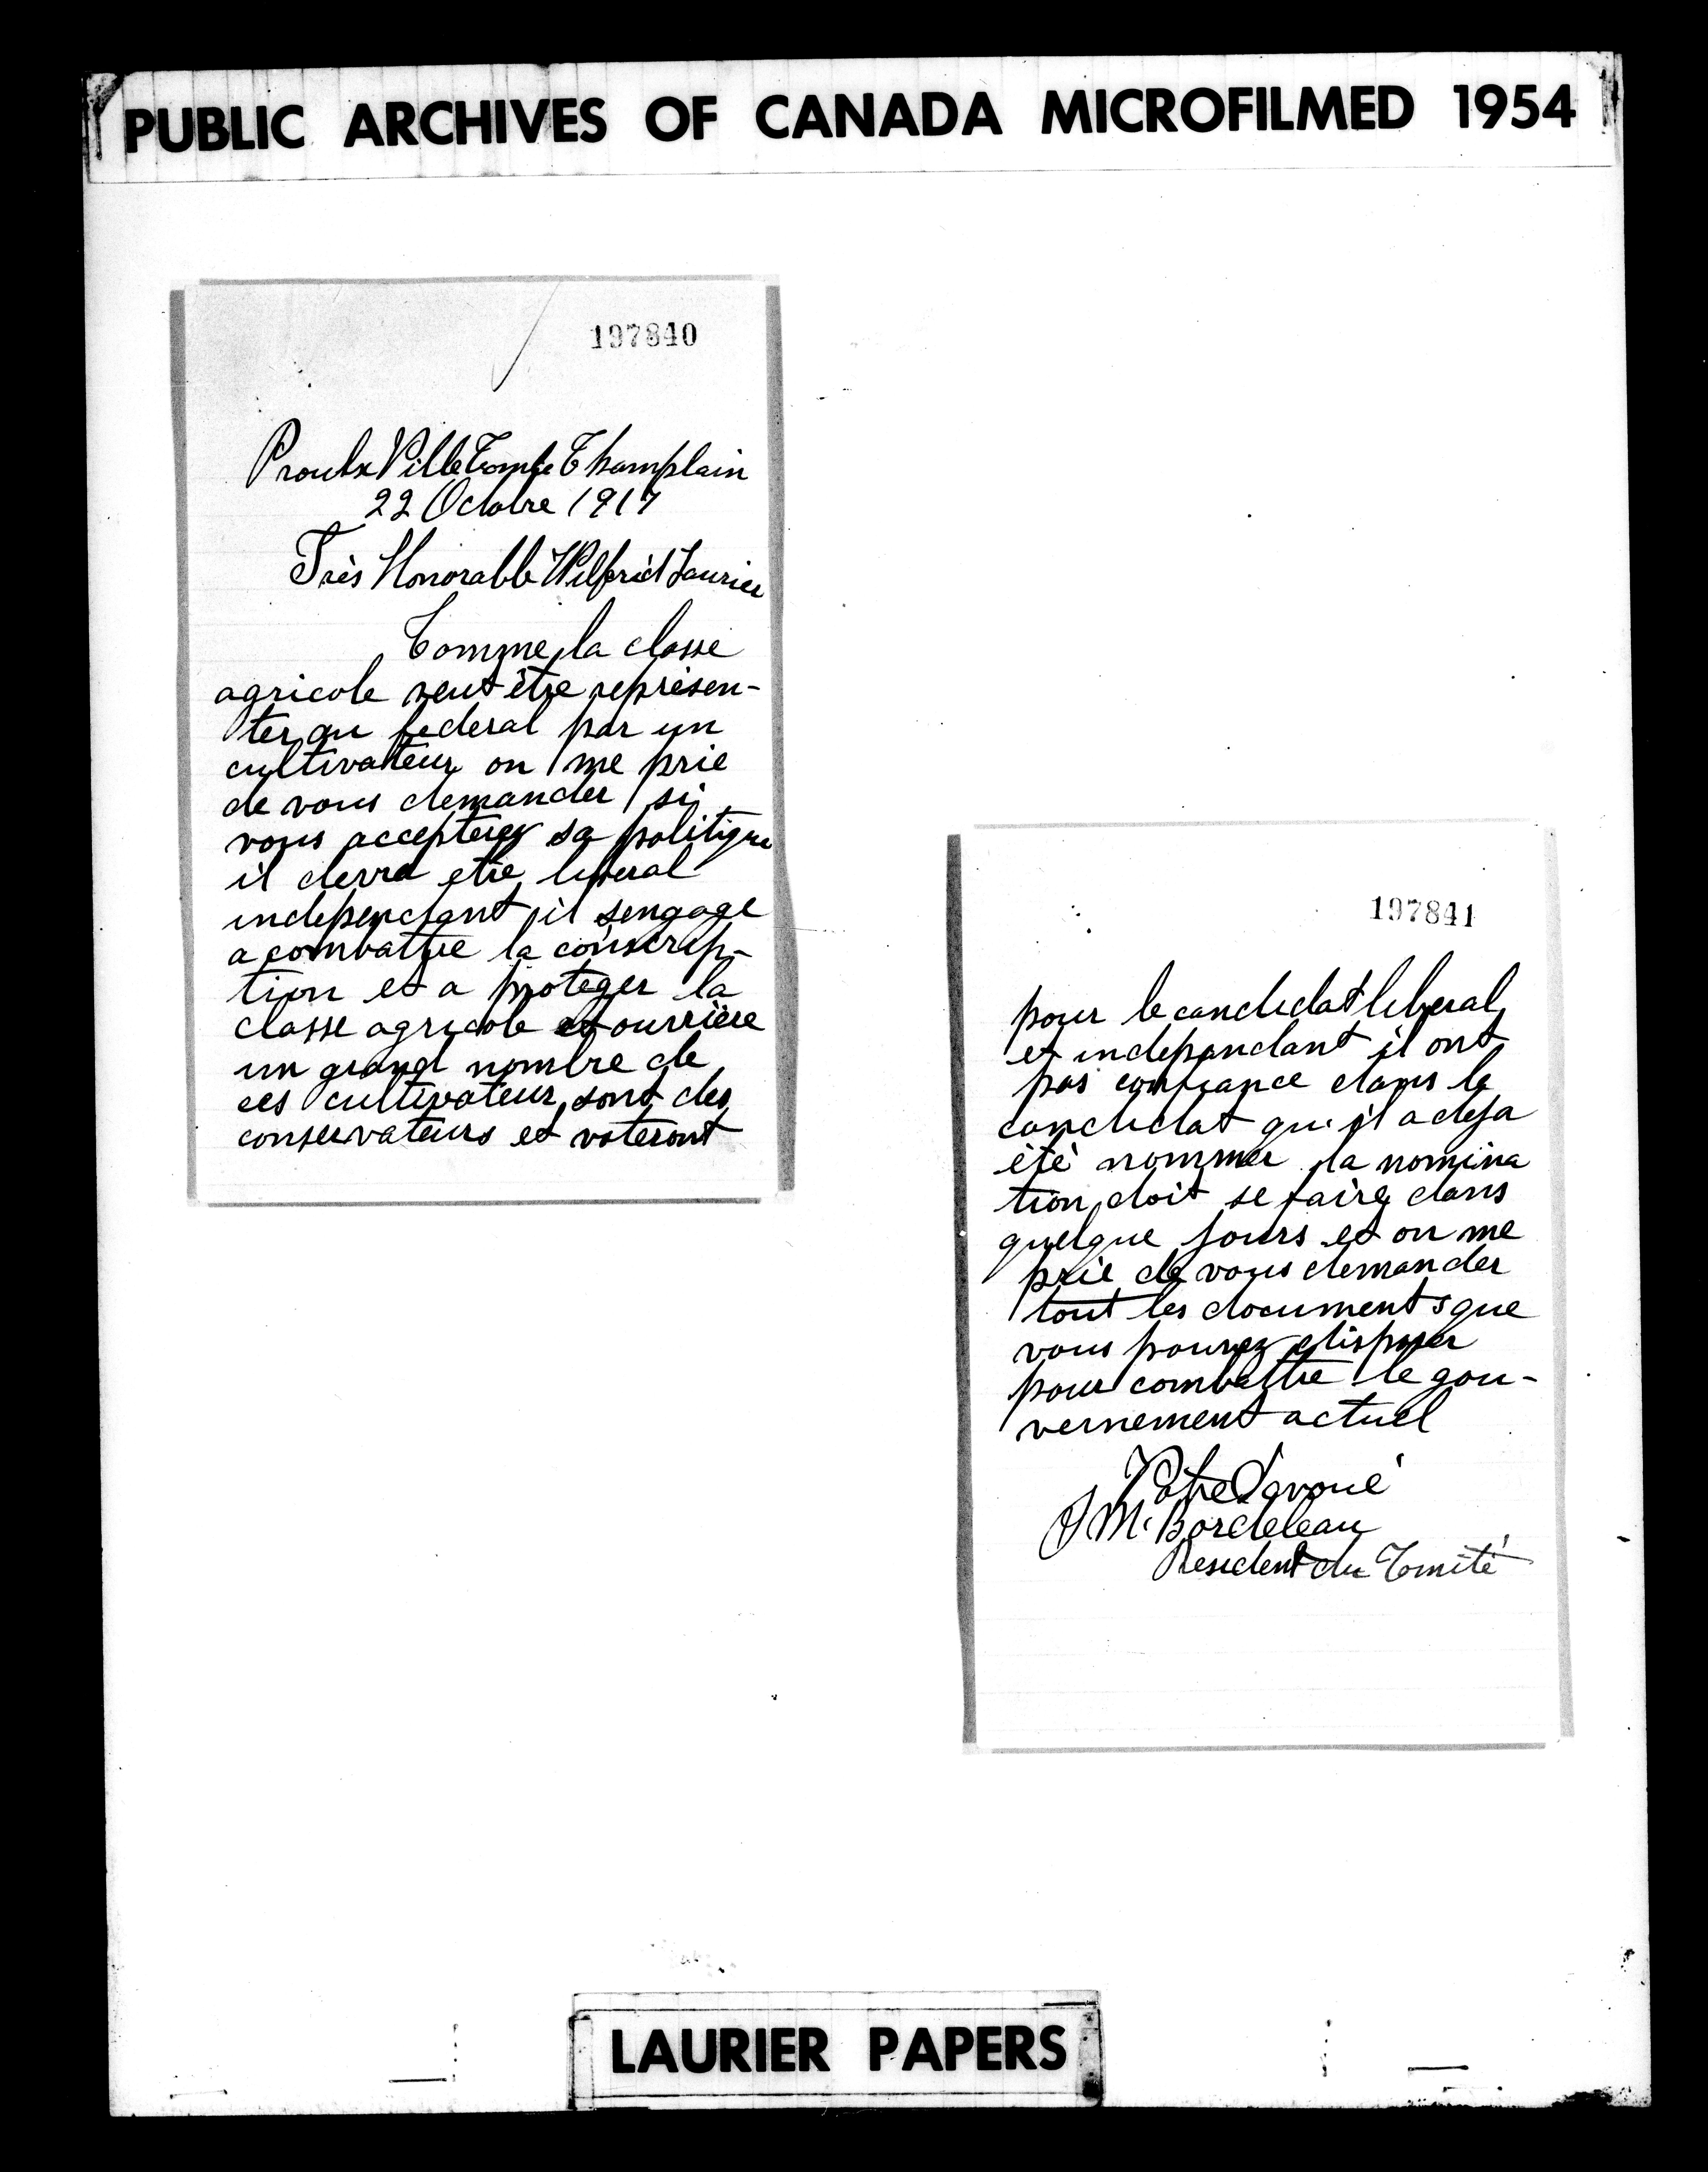 PUBLIC ARCHIVES OF CANADA MICROFILMED 1954
197840
Proulx Ville Comte Champlain
22 Octobre 1917
Très Honorable Wilfrid Laurier
Comme la classe
agricole veut être représen-
ter au federal par un
cultivateur on me prie
de vous demander si
vous accepterez sa politique
il devra etre liberal
independant il sengage
a combattre la conscrip-
tion et a proteger la
classe agricole et ouvrière
un grand nombre de
ces cultivateur sont des
conservateurs et voteront
197841
pour le candidat liberal
et independant il ont
pas confiance dans le
candidat qu'il a deja
été nommer la nomina
tion doit se faire dans
quelque jours et on me
prie de vous demander
tout les documents que
vous pourez disposer
pour combattre le gou-
vernement actuel
Votre Devoué
J M. Bordeleau
President du Comité
LAURIER PAPERS